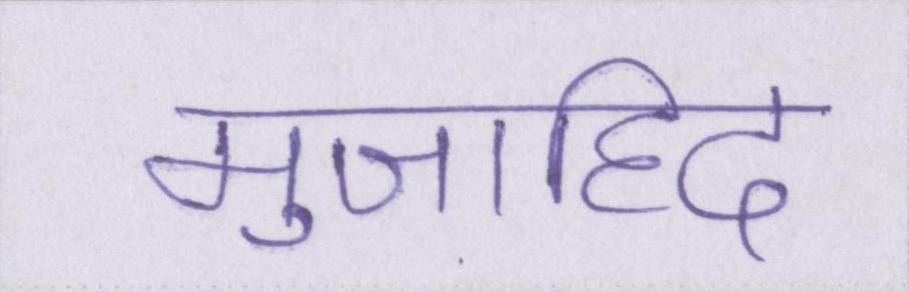 मुजाहिद